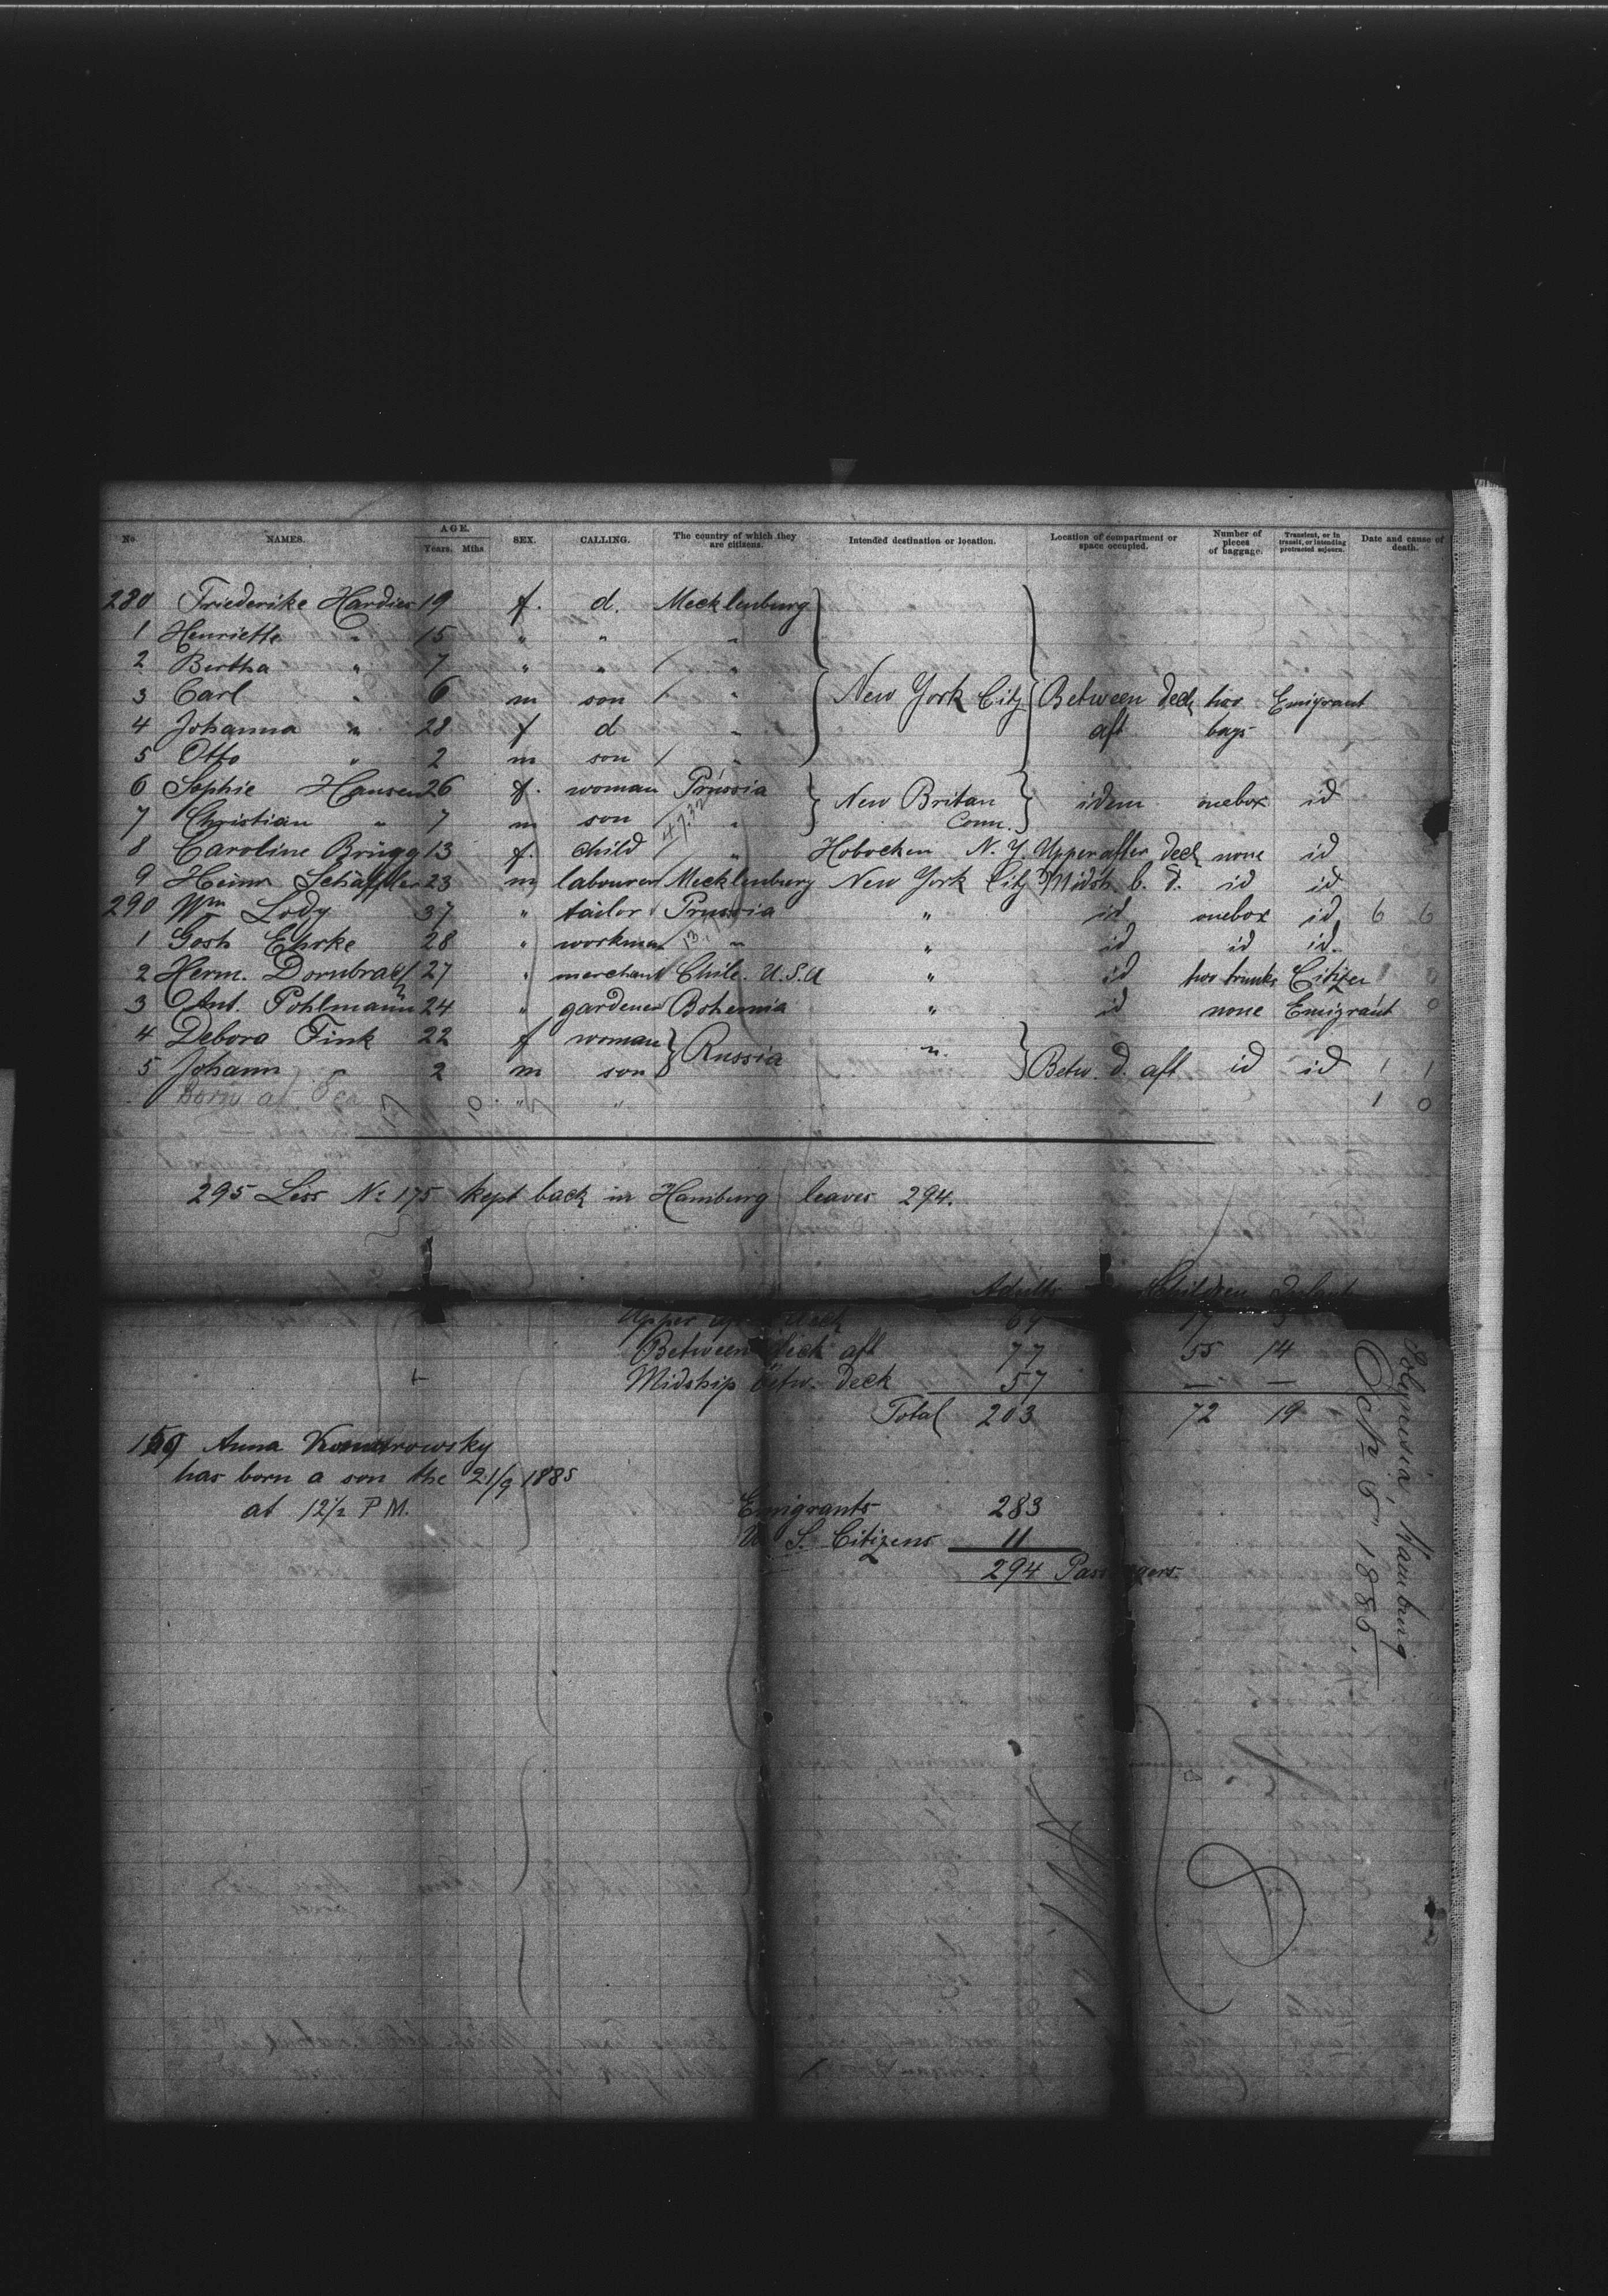 No. NAMES. AGE. Years. Mths SEX. CALLING. The country of which they are citizens. Intended destination or location. Location of compartment or space occupied. Number of pieces of baggage. Transient, or in transit, or intending protracted sojourn. Date and cause of death.
280 Friederike Hardier 19 f. d. Mecklenburg
1 Henriette " 15 " " "
2 Bertha " 7 " " "
3 Carl " 6 m son " New York City Between deck aft two bags Emigrant
4 Johanna " 28 f d "
5 Otto " 2 m son "
6 Sophie Hansen 26 f. woman Prussia New Britan Conn. idem onebox id
7 Christian " 7 m son "
8 Caroline Brügg 13 f. child " Hobocken N. Y. Upper after deck none id
9 Heinr Schäffler 23 m labourer Mecklenburg New York City Midsh. b. d. id id
290 Wm Lody 37 " tailor Prussia " id onebox id 6 6
1 Gosh Ehrke 28 " workman " " id id id.
2 Herm. Dornbrach 27 " merchant Chile. U.S.A " id two trunks Citizen 0
3 Ant. Pohlmann 24 " gardener Bohemia " id none Emigrant 0
4 Debora Fink 22 f woman Russia " Betw. d. aft id id 1 1
5 Johann 2 m son
Born at Sea " " 1 0
17 10
295 Less No 175 kept back in Hamburg leaves 294.
Adults Children Infants
Upper after deck 69 17 5
Between deck aft 77 55 14
Midship betw. deck 57 — —
Total 203 72 19
159 Anna Komorowsky
has born a son the 21/9 1885
at 12 1/2 P M.
Emigrants 283
U S. Citizens 11
294 Passengers.
Polynesia, Hamburg